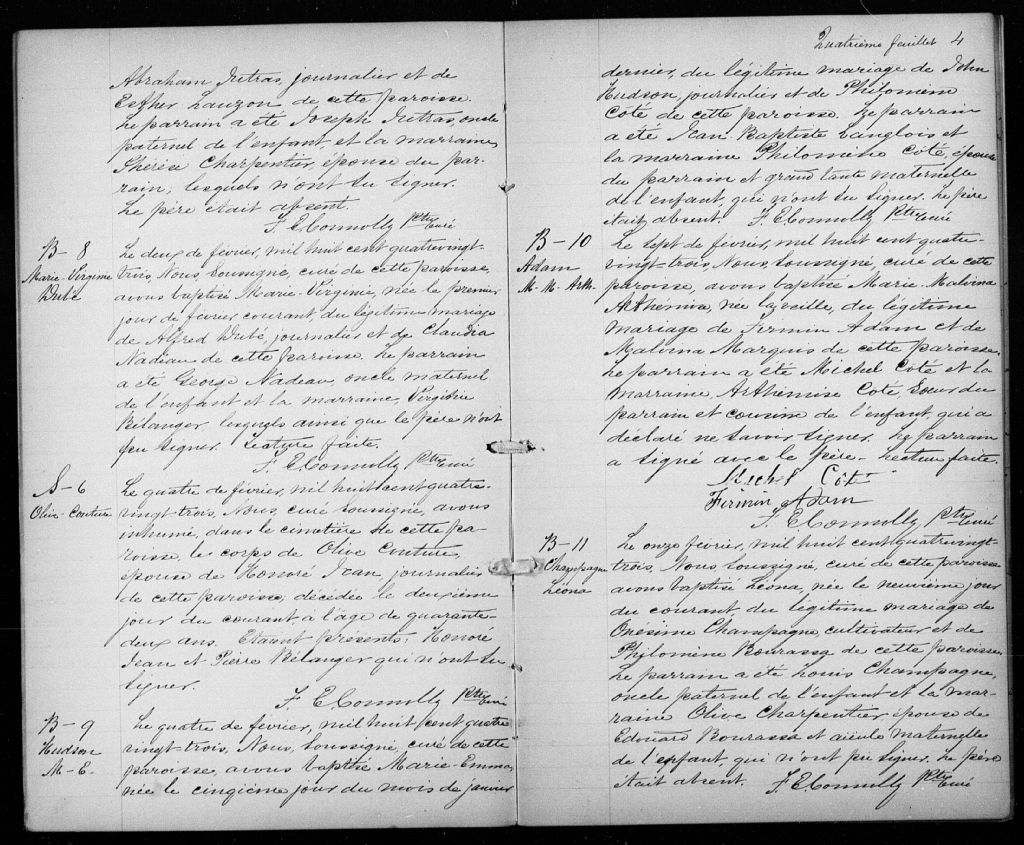 Abraham Jutras, journalier et de
Esther Lauzon de cette paroisse.
Le parrain a été Joseph Jutras oncle
paternel de l'enfant et la marraine
Thérèse Charpentier, épouse du par-
rain; lesquels n'ont su signer.
Le père était absent.
F. E. Connolly Ptre Curé
B-8
Marie Virginie
Dubé
Le deux de février, mil huit cent quatre vingt-
trois, Nous soussigné, curé de cette paroisse,
avons baptisé Marie-Virginie, née le premier
jour de février courant du légitime mariage
de Alfred Dubé, journalier et de Claudia
Nadeau de cette paroisse. Le parrain
a été George Nadeau, oncle maternel
de l'enfant et la marraine, Virginie
Bélanger, lesquels ainsi que le père n'ont
pu signer. Lecture faite.
F. E. Connolly Ptre Curé
S-6
Olive Couture
Le quatre de février, mil huit cent quatre-
vingt-trois, Nous, curé soussigné, avons
inhumé, dans le cimetière de cette pa-
roisse, le corps de Olive Couture,
épouse de Honoré Jean, journalier
de cette paroisse, décédée le deuxième
jour du courant à l'âge de quarante-
deux ans. Etaient présents. Honoré
Jean et Pierre Bélanger qui n'ont su
signer.
F. E. Connolly Ptre Curé
B-9
Hudson
M-E.
Le quatre de février, mil huit cent quatre
vingt-trois, Nous, soussigné, curé de cette
paroisse, avons baptisé Marie-Emma,
née le cinqième jour du mois de janvier
Quatrième feuillet 4
dernier, du légitime mariage de John
Hudson, journalier et de Philomène
Coté de cette paroisse. Le parrain
a été Jean-Baptiste Langlois et
la marraine Philomène Côté, épouse
du parrain et grand'tante maternelle
de l'enfant, qui n'ont su signer. Le père
était absent. F. E. Connolly Ptre Curé
B-10
Adam
M-M-Arth.
Le sept de février, mil huit cent quatre-
vingt-trois, Nous, soussigné, curé de cette
paroisse, avons baptisé Marie-Malvina
Arthémise, née la veille, du légitime
mariage de Firmin Adam et de
Malvina Marquis de cette paroisse.
Le parrain a été Michel Coté et la
marraine, Arthémise Coté, soeur du
parrain et cousine de l'enfant, qui a
déclaré ne savoir signer. Le parrain
a signé avec le père. Lecture faite.
Michel Côté
Firmin Adam
F. E. Connolly Ptre Curé
B-11
Champagne
Léona
Le onze février, mil huit cent quatre vingt-
trois, Nous, soussigné, curé de cette paroisse
avons baptisé Léona, née le neuvième jour
du courant, du légitime mariage de
Onésime Champagne, cultivateur et de
Philomène Bourassa de cette paroisse.
Le parrain a été Louis Champagne,
oncle paternel de l'enfant et la mar-
raine Olive Charpentier épouse de
Edouard Bourassa et aieule maternelle
de l'enfant, qui n'ont pu signer. Le père
était absent. F. E. Connolly Ptre Curé